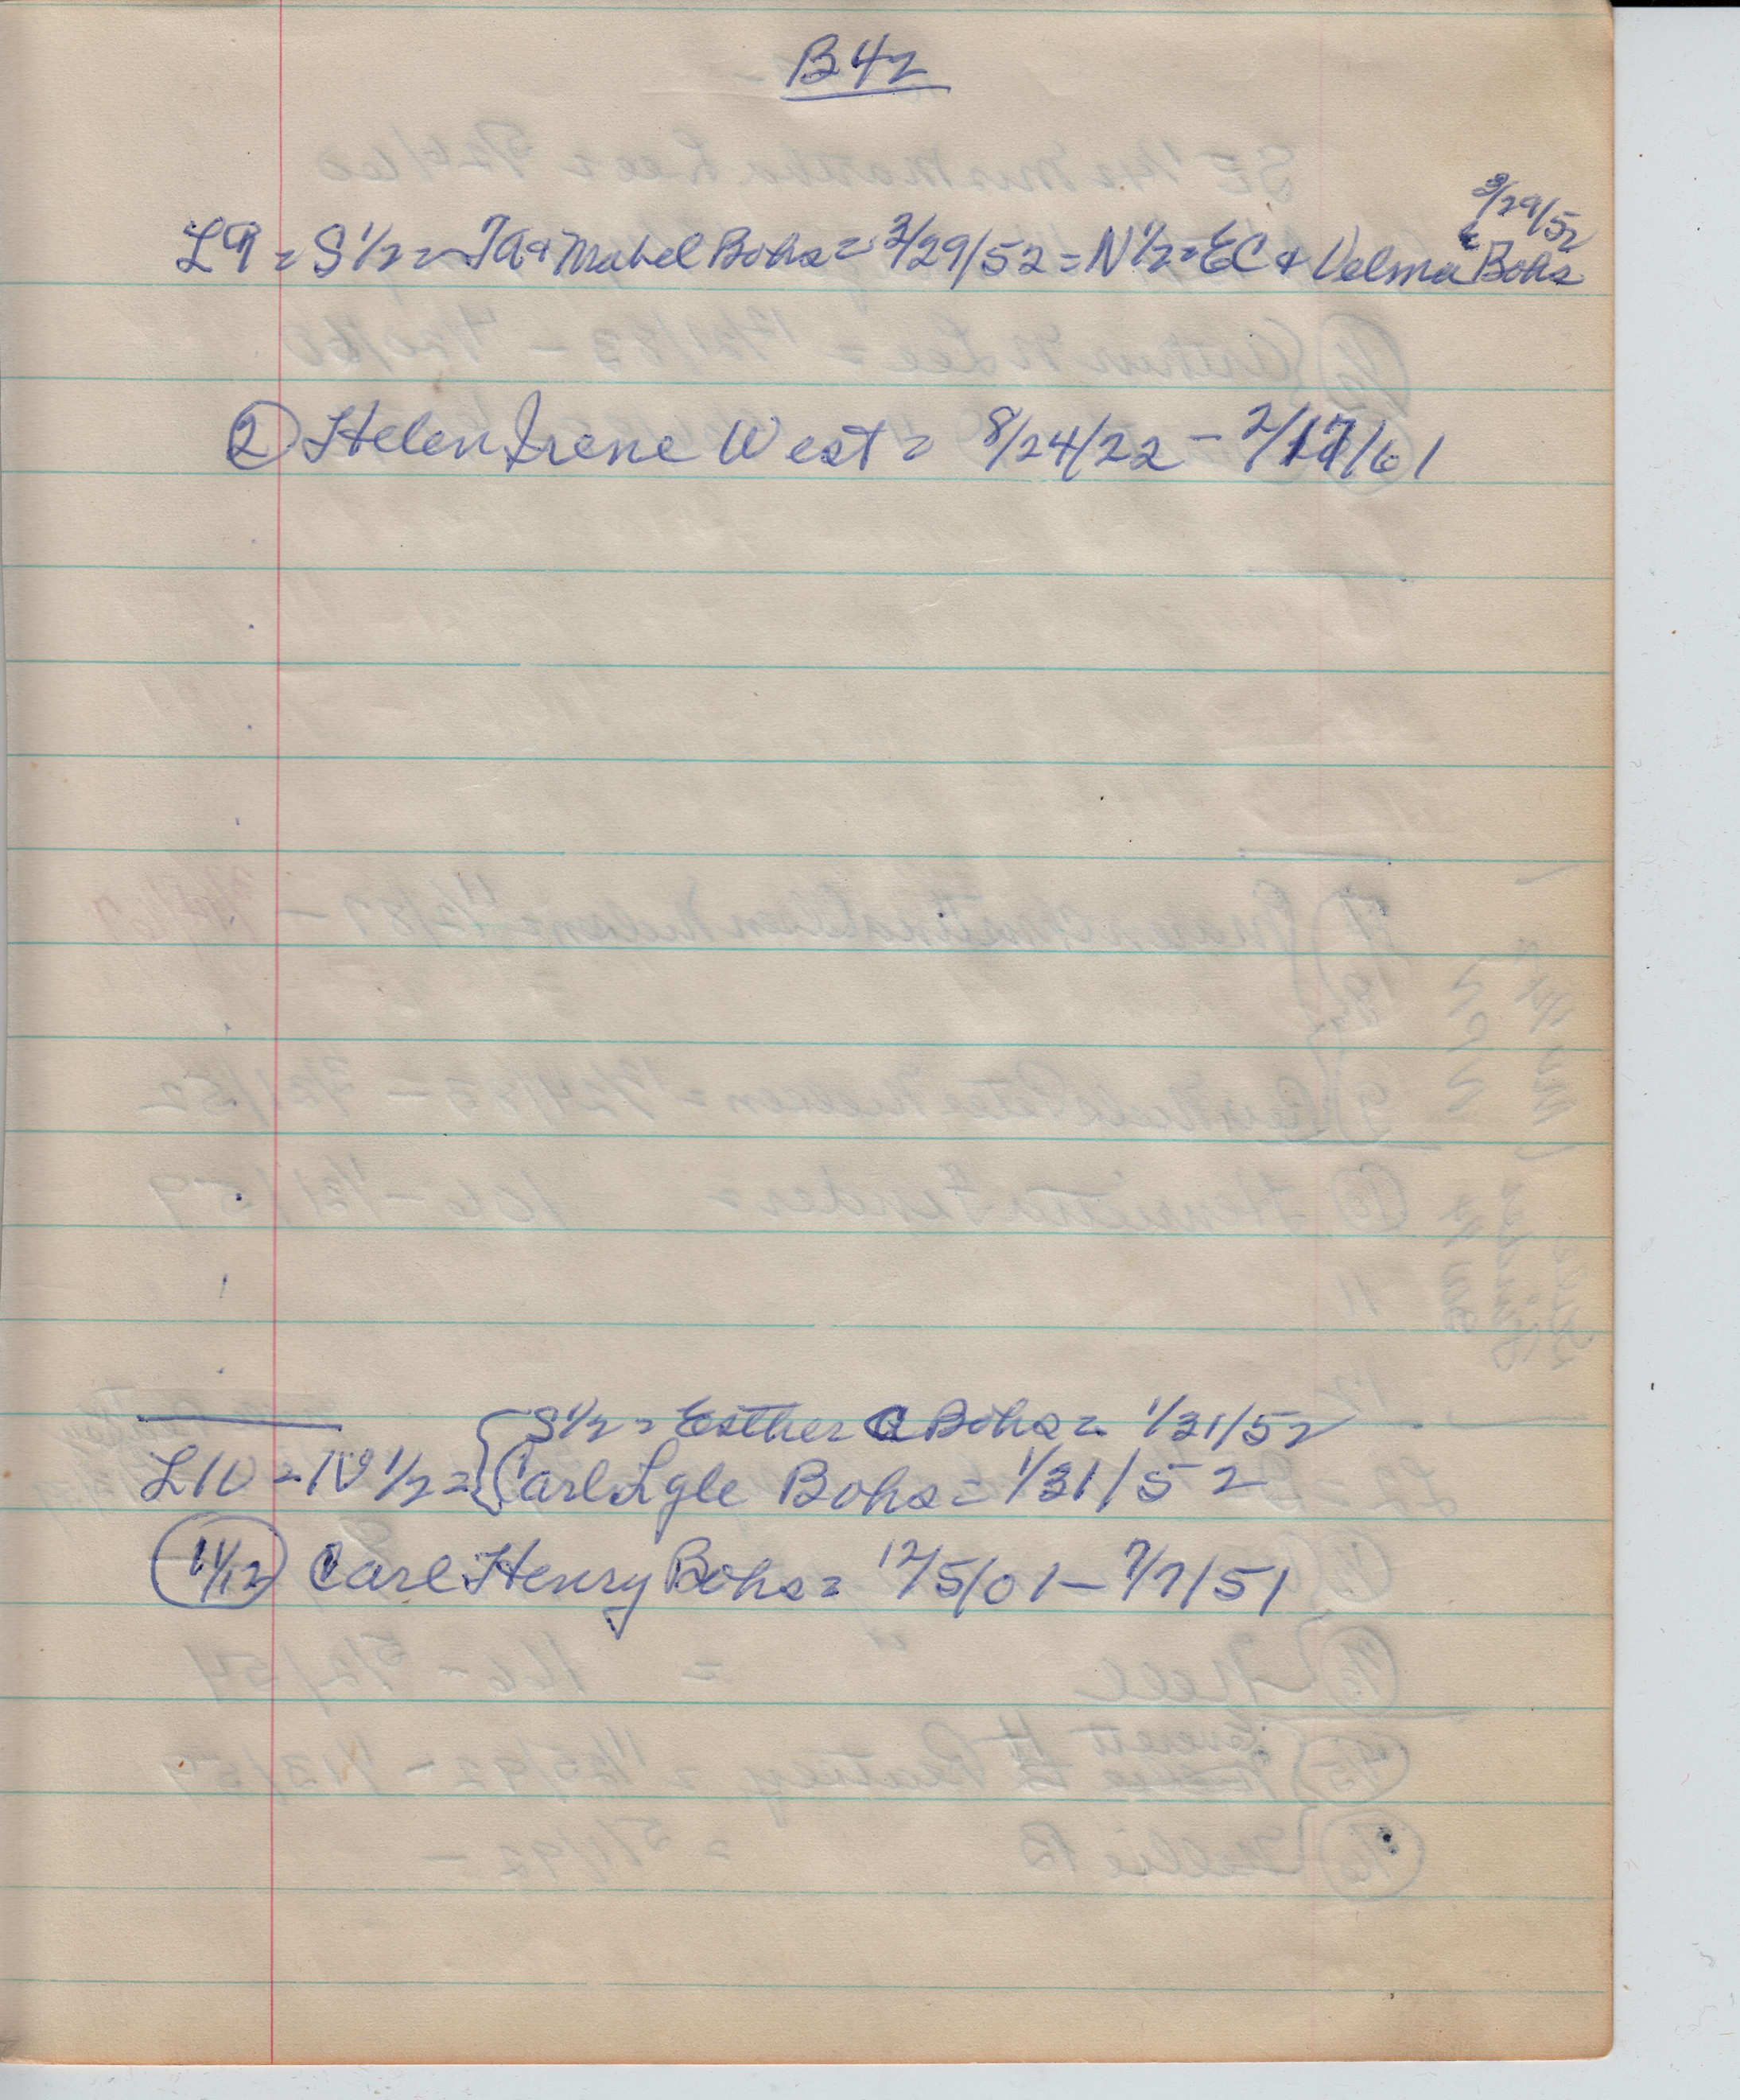 B42
3/29/52
L9 = S 1/2 = TA & Mabel Bohs = 3/29/52 = N 1/2 = EC & Velma Bohs
2 Helen Irene West = 8/24/22 - 2/17/61
S 1/2 = Esther Bohs = 1/31/52
L10 = N 1/2 = Carl Lyle Bohs = 1/31/52
11/12 Carl Henry Bohs = 12/5/01 - 7/7/51